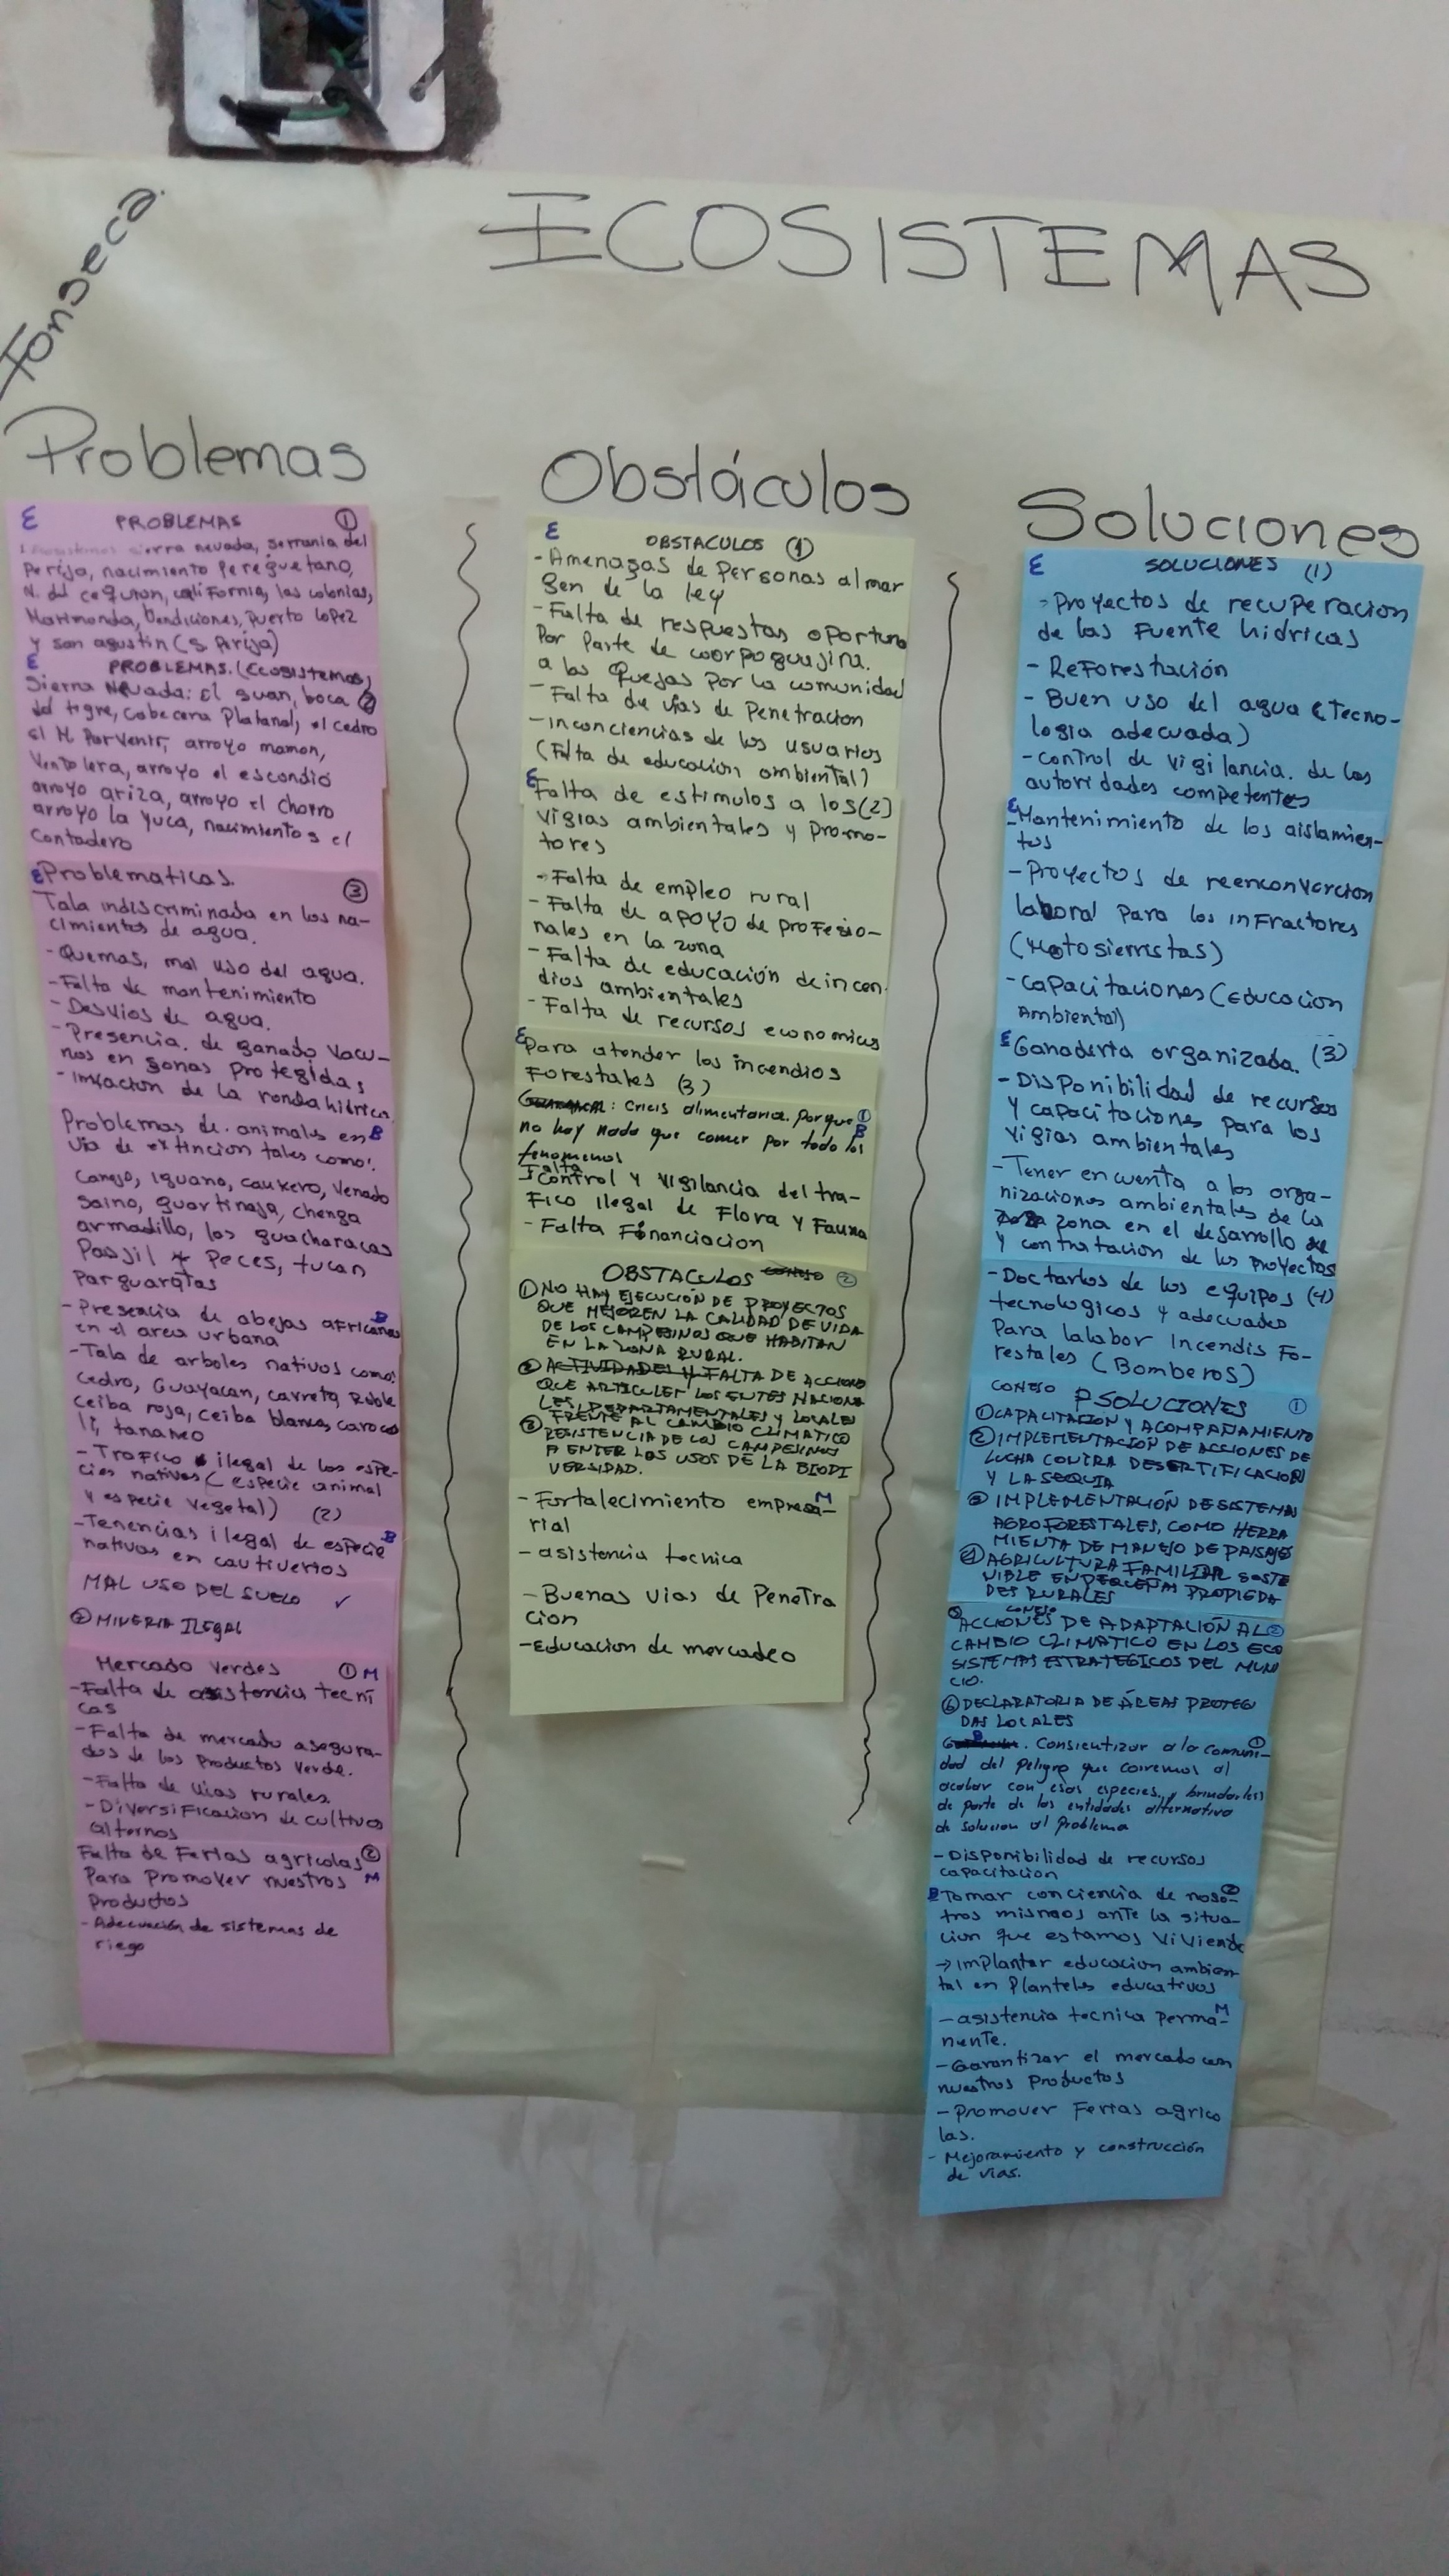 Fonseca.
ECOSISTEMAS
Problemas
E PROBLEMAS ①
sierra nevada, serrania del
Perija, nacimiento Pereguetano,
N. del california, las colonias,
Marimonda, Bendiciones, Puerto Lopez
y san agustin (S. Perija)
E
PROBLEMAS. (Ecosistemas)
Sierra Nevada: El suan, boca ②
del tigre, Cabecera Platanal, el cedro
el M. Porvenir, arroyo mamon,
Ventolera, arroyo el escondio
arroyo ariza, arroyo el chorro
arroyo la yuca, nacimientos el
Contadero
E Problematicas. ③
Tala indiscriminada en los na-
cimientos de agua.
- Quemas, mal uso del agua.
- Falta de mantenimiento
- Desvios de agua.
- Presencia. de ganado vacu-
nos en sonas protegidas
- de la ronda hidrica.
Problemas de. animales en B
via de extincion tales como:
Conejo, Iguana, caukero, Venado
Saino, guartinaja, chenga
armadillo, las guacharacas
Paujil * Peces, tucan
Parguaratas
- Presencia de abejas africanas B
en el area urbana
- Tala de arboles nativos como:
Cedro, Guayacan, carreto, Roble
ceiba roja, ceiba blanca, caroco
li, tananeo
- Trafico ilegal de las espe-
cies nativas (especie animal
y especie vegetal) (2)
- Tenencias ilegal de especie B
nativas en cautiverios
MAL USO DEL SUELO ✓
② MINERIA ILEGAL
Mercado Verdes ① M
- Falta de asistencia tecni
cas
- Falta de mercado asegura-
dos de los Productos Verde.
- Falta de vias rurales.
- Diversificacion de cultivos
alternos
Falta de Ferias agricolas ②
Para Promover nuestros M
Productos
- Adecuación de sistemas de
riego
Obstáculos
E OBSTACULOS ①
- Amenazas de Personas al mar
gen de la ley
- Falta de respuestas oportuna
Por Parte de coorpoguajira.
a las Quejas Por la comunidad
- Falta de vias de Penetracion
- inconciencias de los usuarios
(Falta de educacion ambiental)
E Falta de estimulos a los (2)
vigias ambientales y Promo-
tores
- Falta de empleo rural
- Falta de apoyo de profesio-
nales en la zona
- Falta de educación de incen
dios ambientales
- Falta de recursos economicos
E Para atender los incendios
Forestales (3)
: Crisis alimentaria. Porque ①
no hay nada que comer por todo los B
fenomenos
Falta
- Control y vigilancia del tra-
Fico Ilegal de Flora y Fauna
- Falta Financiacion
OBSTACULOS CONEJO ②
① NO HAY EJECUCIÓN DE PROYECTOS
QUE MEJOREN LA CALIDAD DE VIDA
DE LOS CAMPESINOS QUE HABITAN
EN LA ZONA RURAL.
② ACTIVIDADES Y FALTA DE ACCIONES
QUE ARTICULEN LOS ENTES NACIONA
LES, DEPARTAMENTALES Y LOCALES
FRENTE AL CAMBIO CLIMATICO
③ RESISTENCIA DE LOS CAMPESINOS
A ENTER LOS USOS DE LA BIODI
VERSIDAD.
- Fortalecimiento empresa- M
rial
- asistencia tecnica
- Buenas vias de Penetra
cion
- Educacion de mercadeo
Soluciones
E SOLUCIONES (1)
- Proyectos de recuperacion
de las Fuente hidricas
- Reforestación
- Buen uso del agua (Tecno-
logia adecuada)
- control de vigilancia. de las
autoridades competentes
E
- Mantenimiento de los aislamien-
tos
- Proyectos de reenconvercion
laboral Para los infractores
(Motosierristas)
- capacitaciones (educacion
Ambiental)
E Ganaderia organizada. (3)
- Disponibilidad de recursos
y capacitaciones para los
vigias ambientales
- Tener en cuenta a las orga-
nizaciones ambientales de la
zona en el desarrollo de
y contratacion de los proyectos
- Doctarlos de los equipos (4)
tecnologicos y adecuados
Para la labor Incendis Fo-
restales (Bomberos)
CONEJO SOLUCIONES ①
① CAPACITACION Y ACOMPAÑAMIENTO
② IMPLEMENTACIÓN DE ACCIONES DE
LUCHA CONTRA DESERTIFICACION
Y LA SEQUIA
③ IMPLEMENTACIÓN DE SISTEMAS
AGROFORESTALES, COMO HERRA
MIENTA DE MANEJO DE PAISAJE
④ AGRICULTURA FAMILIAR SOSTE
NIBLE EN PEQUEÑAS PROPIEDA
DES RURALES
CONEJO
⑤ ACCIONES DE ADAPTACIÓN AL ②
CAMBIO CLIMATICO EN LOS ECO
SISTEMAS ESTRATEGICOS DEL MUNI
CIO.
⑥ DECLARATORIA DE ÁREAS PROTEGI
DAS LOCALES
B ①
. Consientizar a la comuni-
dad del peligro que corremos al
acabar con esas especies, y brindarles
de parte de las entidades alternativa
de solucion al Problema
- Disponibilidad de recursos
capacitacion
B Tomar conciencia de noso- ②
tros mismos ante la situa-
cion que estamos viviendo
→ implantar educacion ambien-
tal en Planteles educativos
- asistencia tecnica perma- M
nente.
- Garantizar el mercado con
nuestros Productos
- Promover Ferias agrico
las.
- Mejoramiento y construcción
de vias.